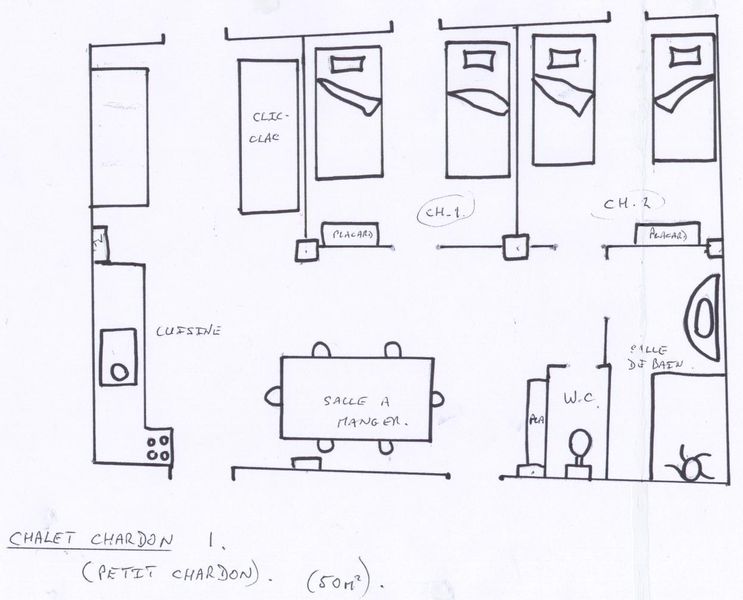 CLIC-
CLAC
CH.1
CH.2
PLACARD
PLACARD
TV
CUISINE
SALLE A
MANGER.
SALLE
DE BAIN.
W.C.
PLA
CHALET CHARDON 1.
(PETIT CHARDON). (50m²).